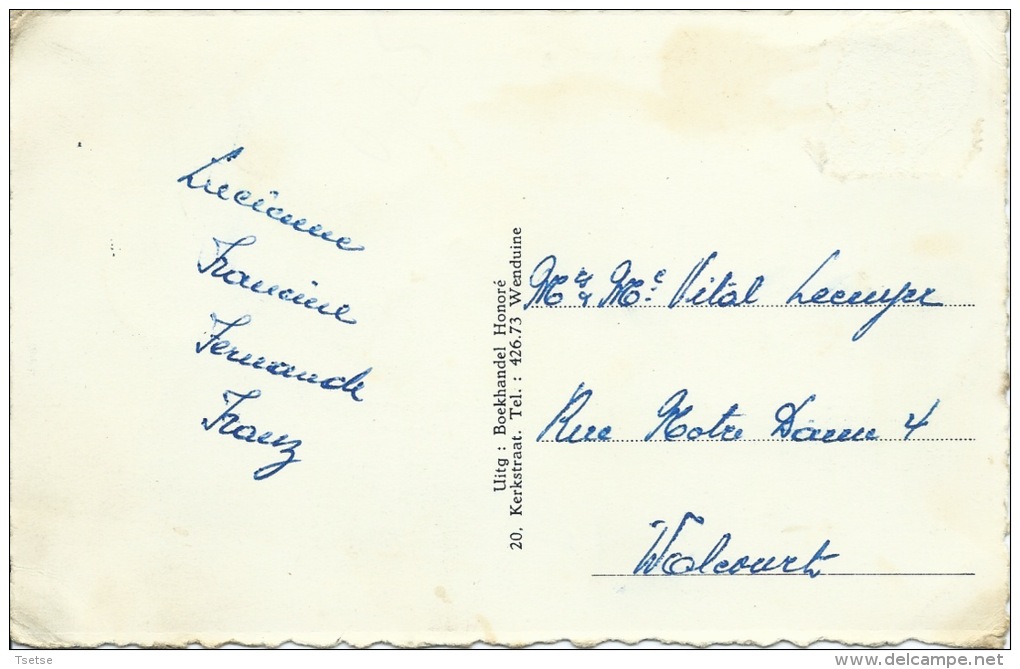 Lucienne
Francine
Fernande
Franz
Uitg : Boekhandel Honoré
20, Kerkstraat. Tel. : 426.73 Wenduine
Mr & Me Vital Lecuyer
Rue Notre Dame 4
Walcourt
Tsetse
www.delcampe.net